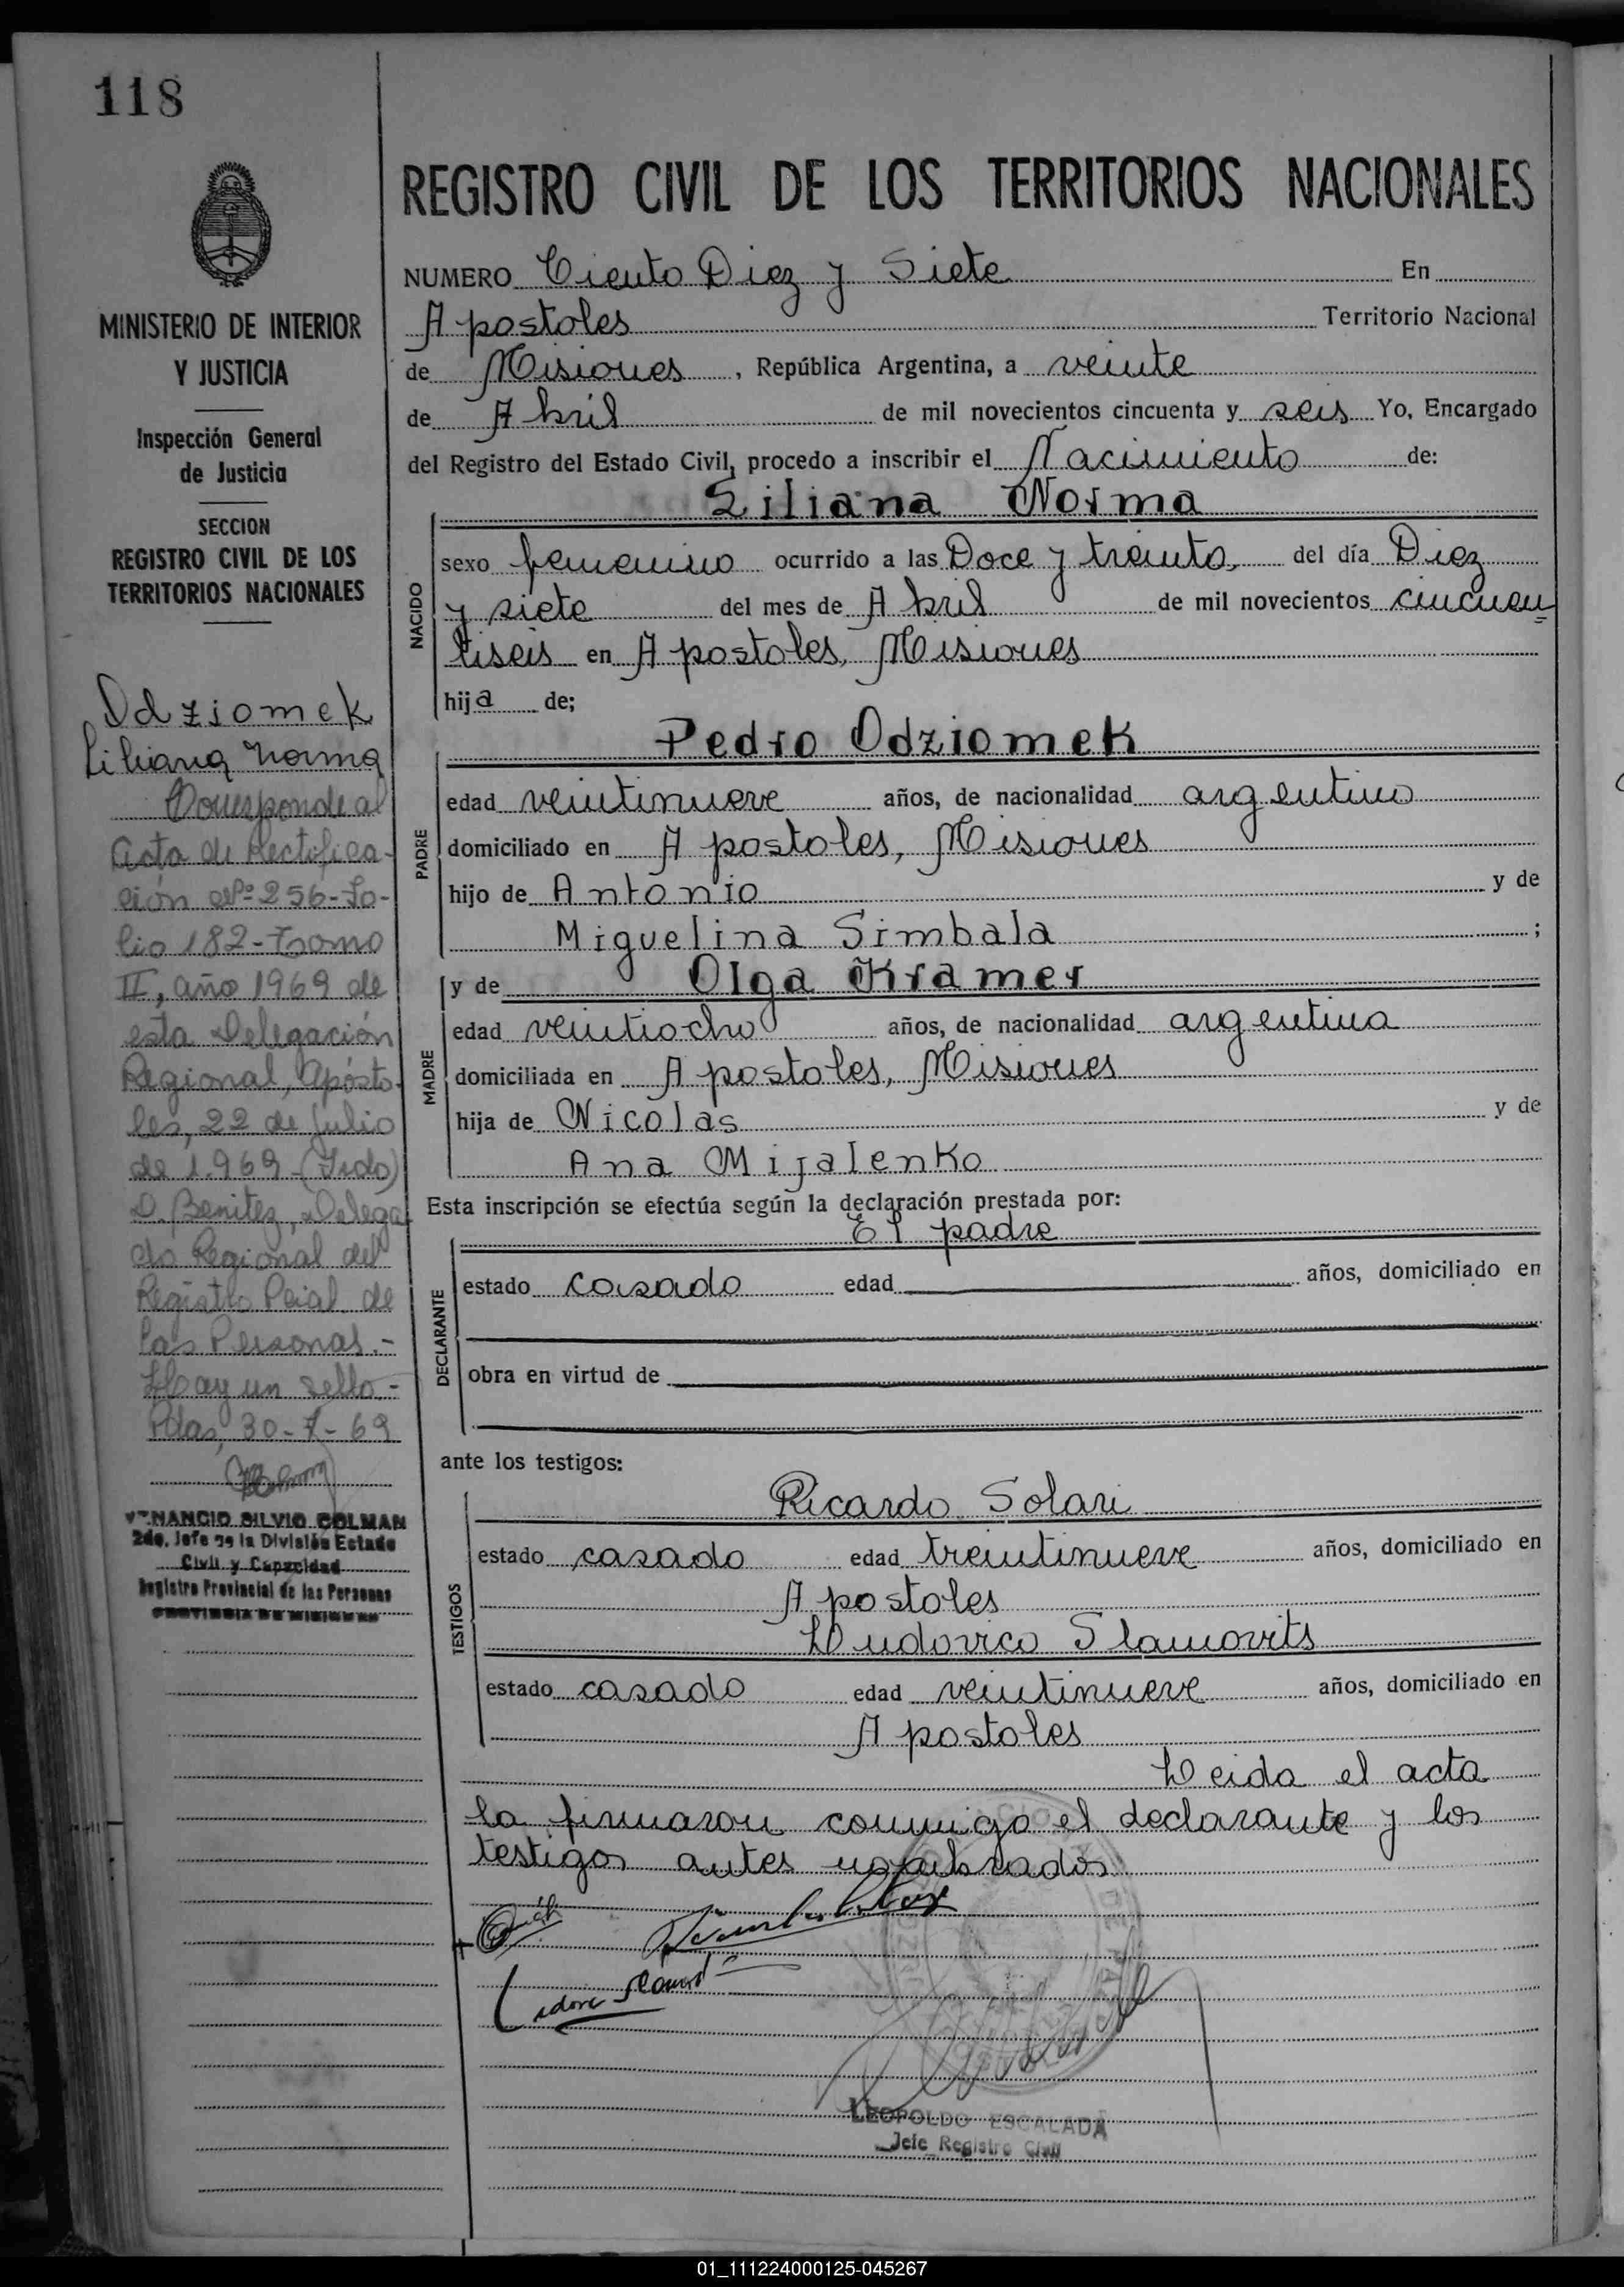 118
MINISTERIO DE INTERIOR
Y JUSTICIA
Inspección General
de Justicia
SECCION
REGISTRO CIVIL DE LOS
TERRITORIOS NACIONALES
Odziomek
Liliana Norma
Corresponde al
Acta de Rectifica-
ción Nº 256-Fo-
lio 182-Tomo
II, año 1969 de
esta Delegación
Regional, Apósto-
les, 22 de julio
de 1.969-(Fdo)
D. Benitez, Delega
do Regional del
Registro Pcial. de
las Personas.-
Hay un sello.-
Pdas, 30-7-69
VENANCIO SILVIO COLMAN
2do. Jefe de la División Estado
Civil y Capacidad
Registro Provincial de las Personas
PROVINCIA DE MISIONES
REGISTRO CIVIL DE LOS TERRITORIOS NACIONALES
NUMERO Ciento Diez y Siete En
Apostoles Territorio Nacional
de Misiones, República Argentina, a veinte
de Abril de mil novecientos cincuenta y seis Yo, Encargado
del Registro del Estado Civil, procedo a inscribir el Nacimiento de:
Liliana Norma
NACIDO
sexo femenino ocurrido a las Doce y treinta, del día Diez
y siete del mes de Abril de mil novecientos cincuen
tiseis en Apostoles, Misiones
hija de;
Pedro Odziomek
PADRE
edad veintinueve años, de nacionalidad argentino
domiciliado en Apostoles, Misiones
hijo de Antonio y de
Miguelina Simbala ;
y de Olga Kramer
MADRE
edad veintiocho años, de nacionalidad argentina
domiciliada en Apostoles, Misiones
hija de Nicolas y de
Ana Mijalenko
Esta inscripción se efectúa según la declaración prestada por:
El padre
DECLARANTE
estado casado edad años, domiciliado en
obra en virtud de
ante los testigos:
Ricardo Solari
TESTIGOS
estado casado edad treintinueve años, domiciliado en
Apostoles
Ludovico Slamovits
estado casado edad veintinueve años, domiciliado en
Apostoles
Leida el acta
la firmaron conmigo el declarante y los
testigos antes nombrados
LEOPOLDO ESCALADA
Jefe Registro Civil
01_111224000125-045267